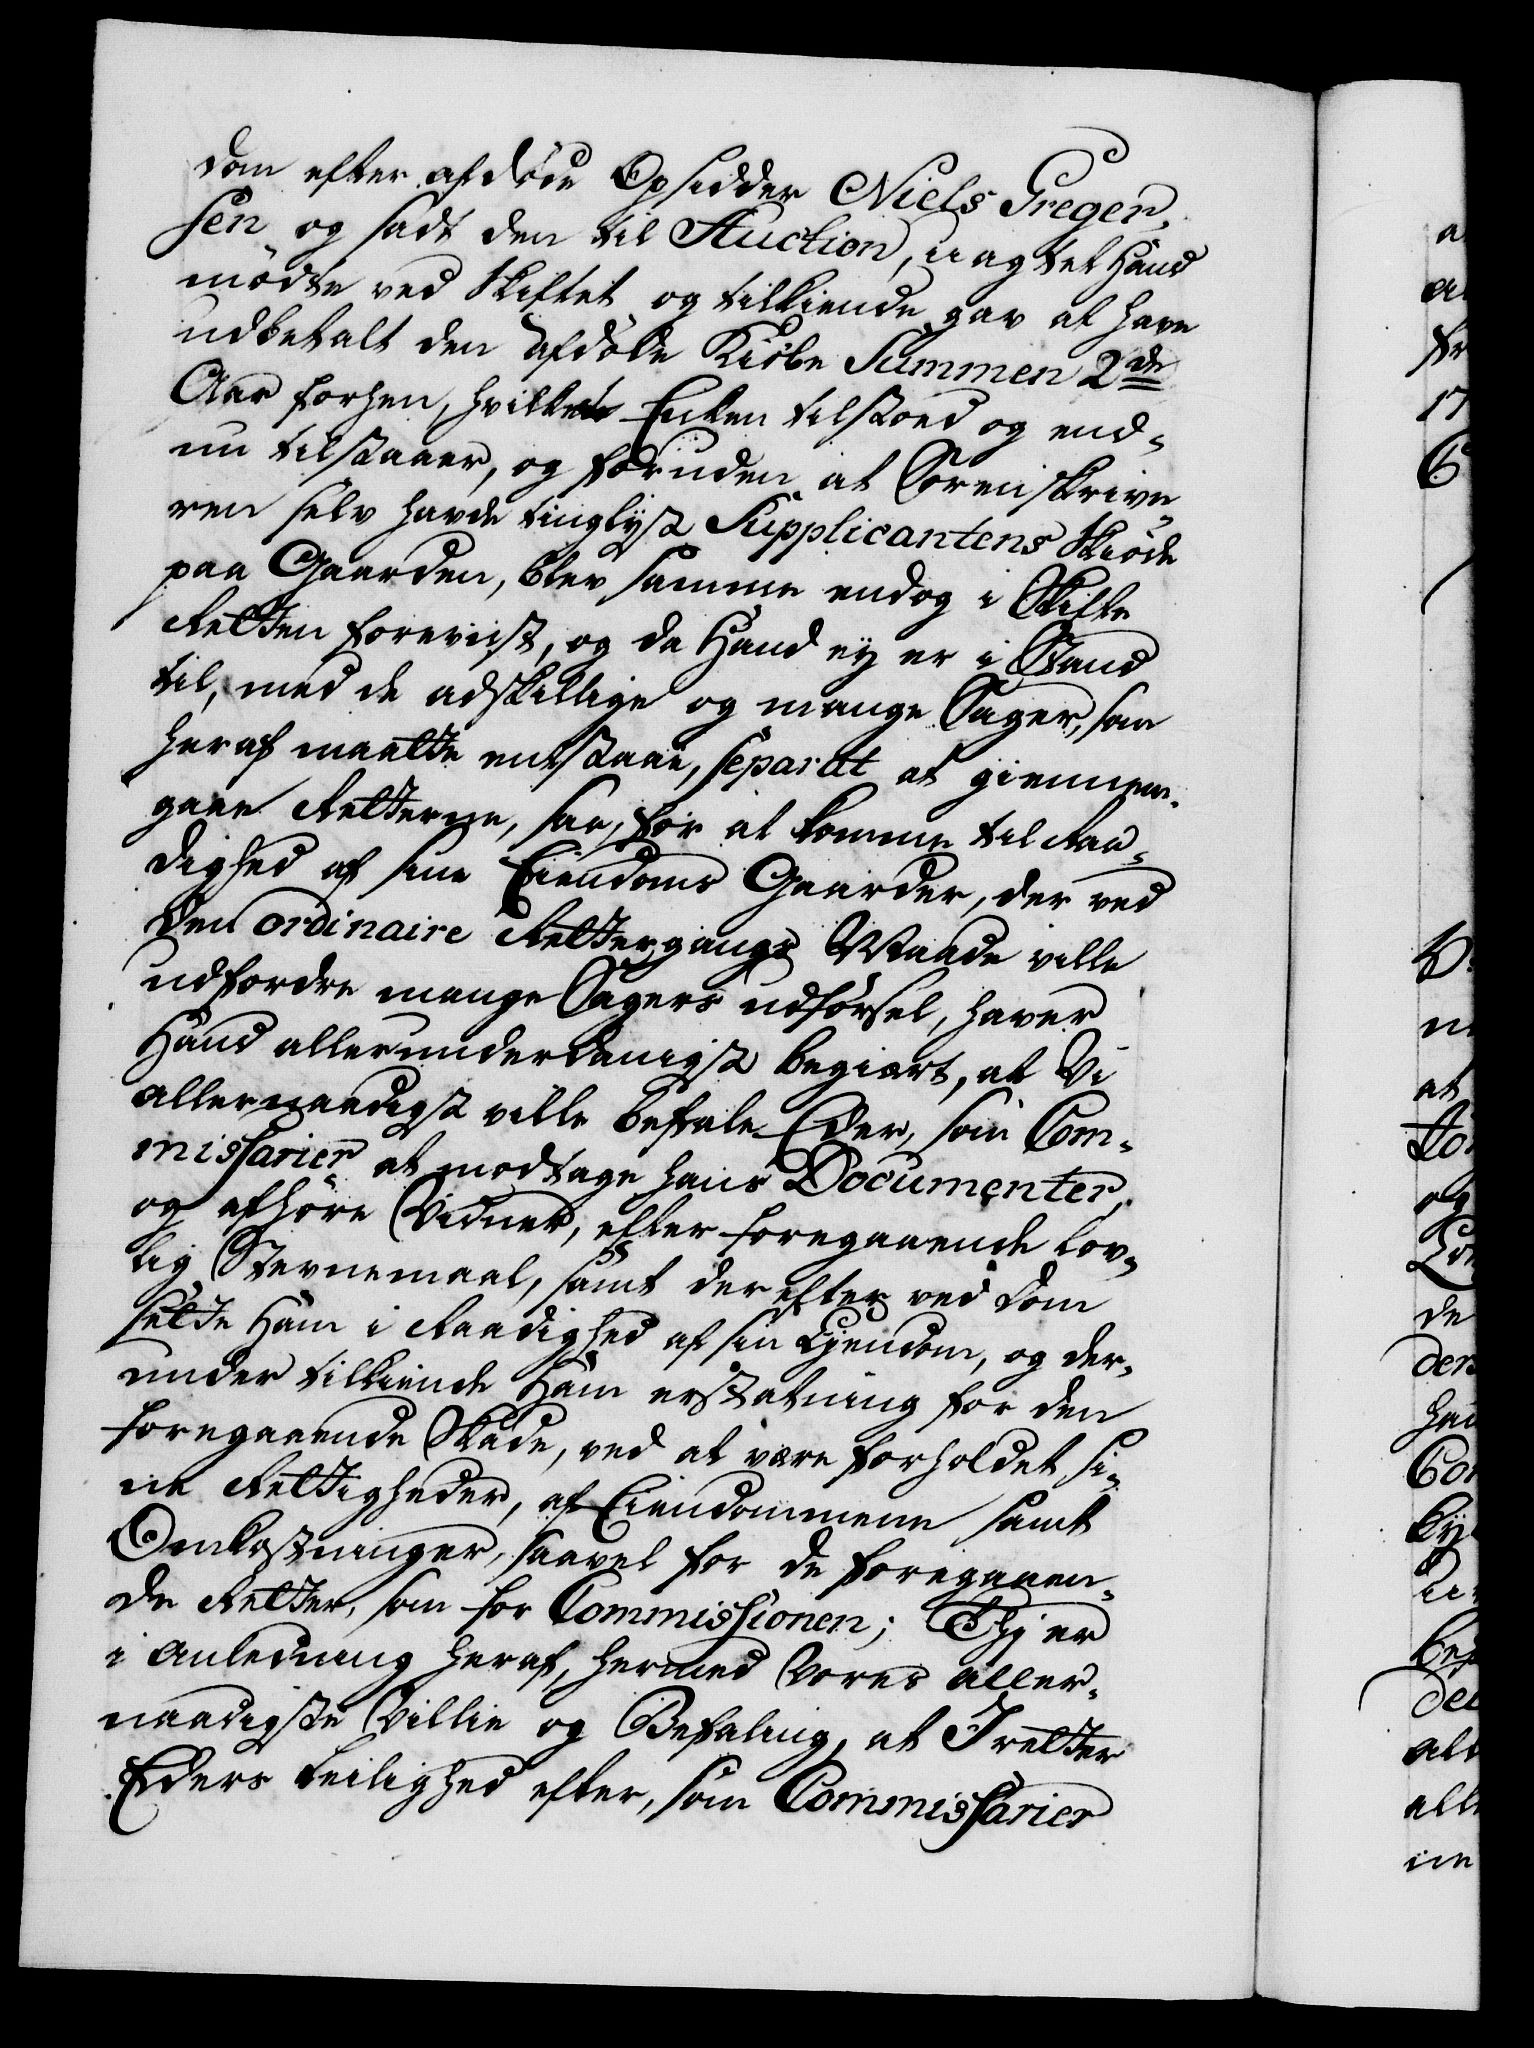 dom efter afdøde Opsidder Niels Greger,
sen og sadt den til Auction, uagtet Hand
mødte ved Skiftet og tilkiende gav at have
udbetalt den Afdøde Kiøbe Summen 2de
Aar forhen, hvilket Enken tilstoed og end-
nu tilstaaer, og foruden at Sorenskrive-
ren selv havde tinglyst Supplicantens Skiøde
paa Gaarden, blev samme endog i Skifte
Retten foreviist, og da Hand ey er i Stand
til, med de adskillige og mange Sager, som
heraf maatte entstaae, separat at giennem-
gaae Retterne, saa, for at komme til Raa-
dighed af sine Eiendoms Gaarder, der ved
den ordinaire Rettergangs Maade ville
udfordre mange Sagers udførsel, haver
Hand allerunderdanigst begiært, at Vi
allernaadigst ville befale Eder, som Com-
missarier at modtage hans Documenter,
og afhøre Vidner, efter foregaaende lov-
lig Stevnemaal, samt derefter ved Dom
sætte Ham i Raadighed af sin Ejendom, og der-
under tilkiende Ham erstatning for den
foregaaende Skade, ved at være forholdet si-
ne Rettigheder, af Eiendommene samt
Omkostninger, saavel for de foregaaen-
de Retter, som for Commissionen; Thj er
i Anledning heraf, hermed Vores aller-
naadigste Villie og Befaling, at I retter
Eders Leilighed efter, som Commissarier